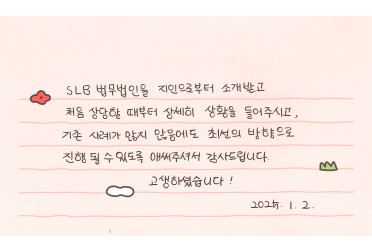 SLB 법무법인을 지인으로부터 소개받고
처음 상담할 때부터 상세히 상황을 들어주시고,
기존 사례가 많지 않음에도 최선의 방향으로
진행 될 수 있도록 애써주셔서 감사드립니다.
고생하셨습니다!
2025. 1. 2.